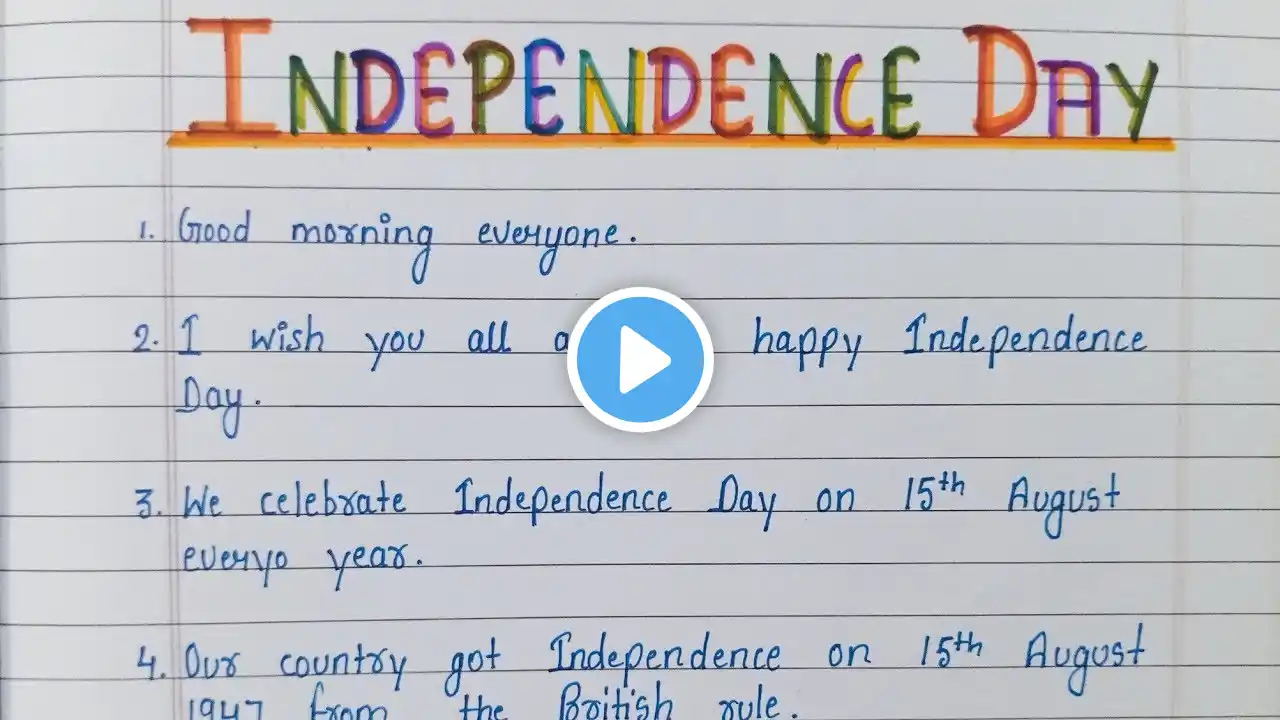 INDEPENDENCE DAY
1. Good morning everyone.
2. I wish you all a happy Independence
Day.
3. We celebrate Independence Day on 15th August
everyo year.
4. Our country got Independence on 15th August
1947 from the British rule.